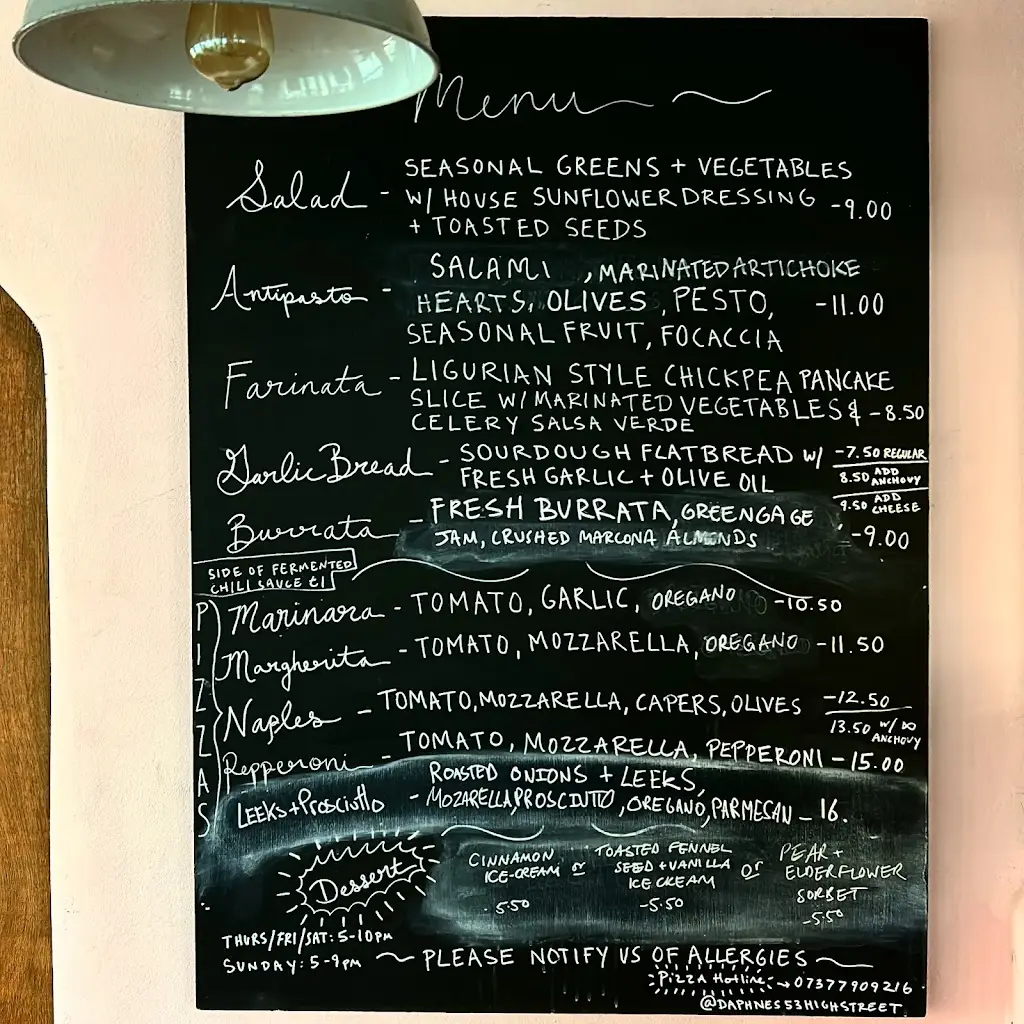 Menu
Salad - SEASONAL GREENS + VEGETABLES
W/ HOUSE SUNFLOWER DRESSING - 9.00
+ TOASTED SEEDS
Antipasto - SALAMI , MARINATED ARTICHOKE
HEARTS, OLIVES, PESTO, - 11.00
SEASONAL FRUIT, FOCACCIA
Farinata - LIGURIAN STYLE CHICKPEA PANCAKE
SLICE W/ MARINATED VEGETABLES & - 8.50
CELERY SALSA VERDE
Garlic Bread - SOURDOUGH FLATBREAD W/ - 7.50 REGULAR
FRESH GARLIC + OLIVE OIL 8.50 ADD ANCHOVY
9.50 ADD CHEESE
Burrata - FRESH BURRATA, GREENGAGE
JAM, CRUSHED MARCONA ALMONDS - 9.00
SIDE OF FERMENTED
CHILI SAUCE £1
PIZZAS
Marinara - TOMATO, GARLIC, OREGANO - 10.50
Margherita - TOMATO, MOZZARELLA, OREGANO - 11.50
Naples - TOMATO, MOZZARELLA, CAPERS, OLIVES - 12.50
13.50 W/ ANCHOVY
Pepperoni - TOMATO, MOZZARELLA, PEPPERONI - 15.00
ROASTED ONIONS + LEEKS,
LEEKS + Prosciutto - MOZARELLA, PROSCIUTTO, OREGANO, PARMESAN - 16.
Dessert
CINNAMON
ICE-CREAM
5.50
or
TOASTED FENNEL
SEED + VANILLA
ICE CREAM
- 5.50
or
PEAR +
ELDERFLOWER
SORBET
- 5.50
THURS/FRI/SAT: 5-10PM
SUNDAY: 5-9PM
~ PLEASE NOTIFY US OF ALLERGIES ~
Pizza Hotline → 07377909216
@DAPHNES53HIGHSTREET